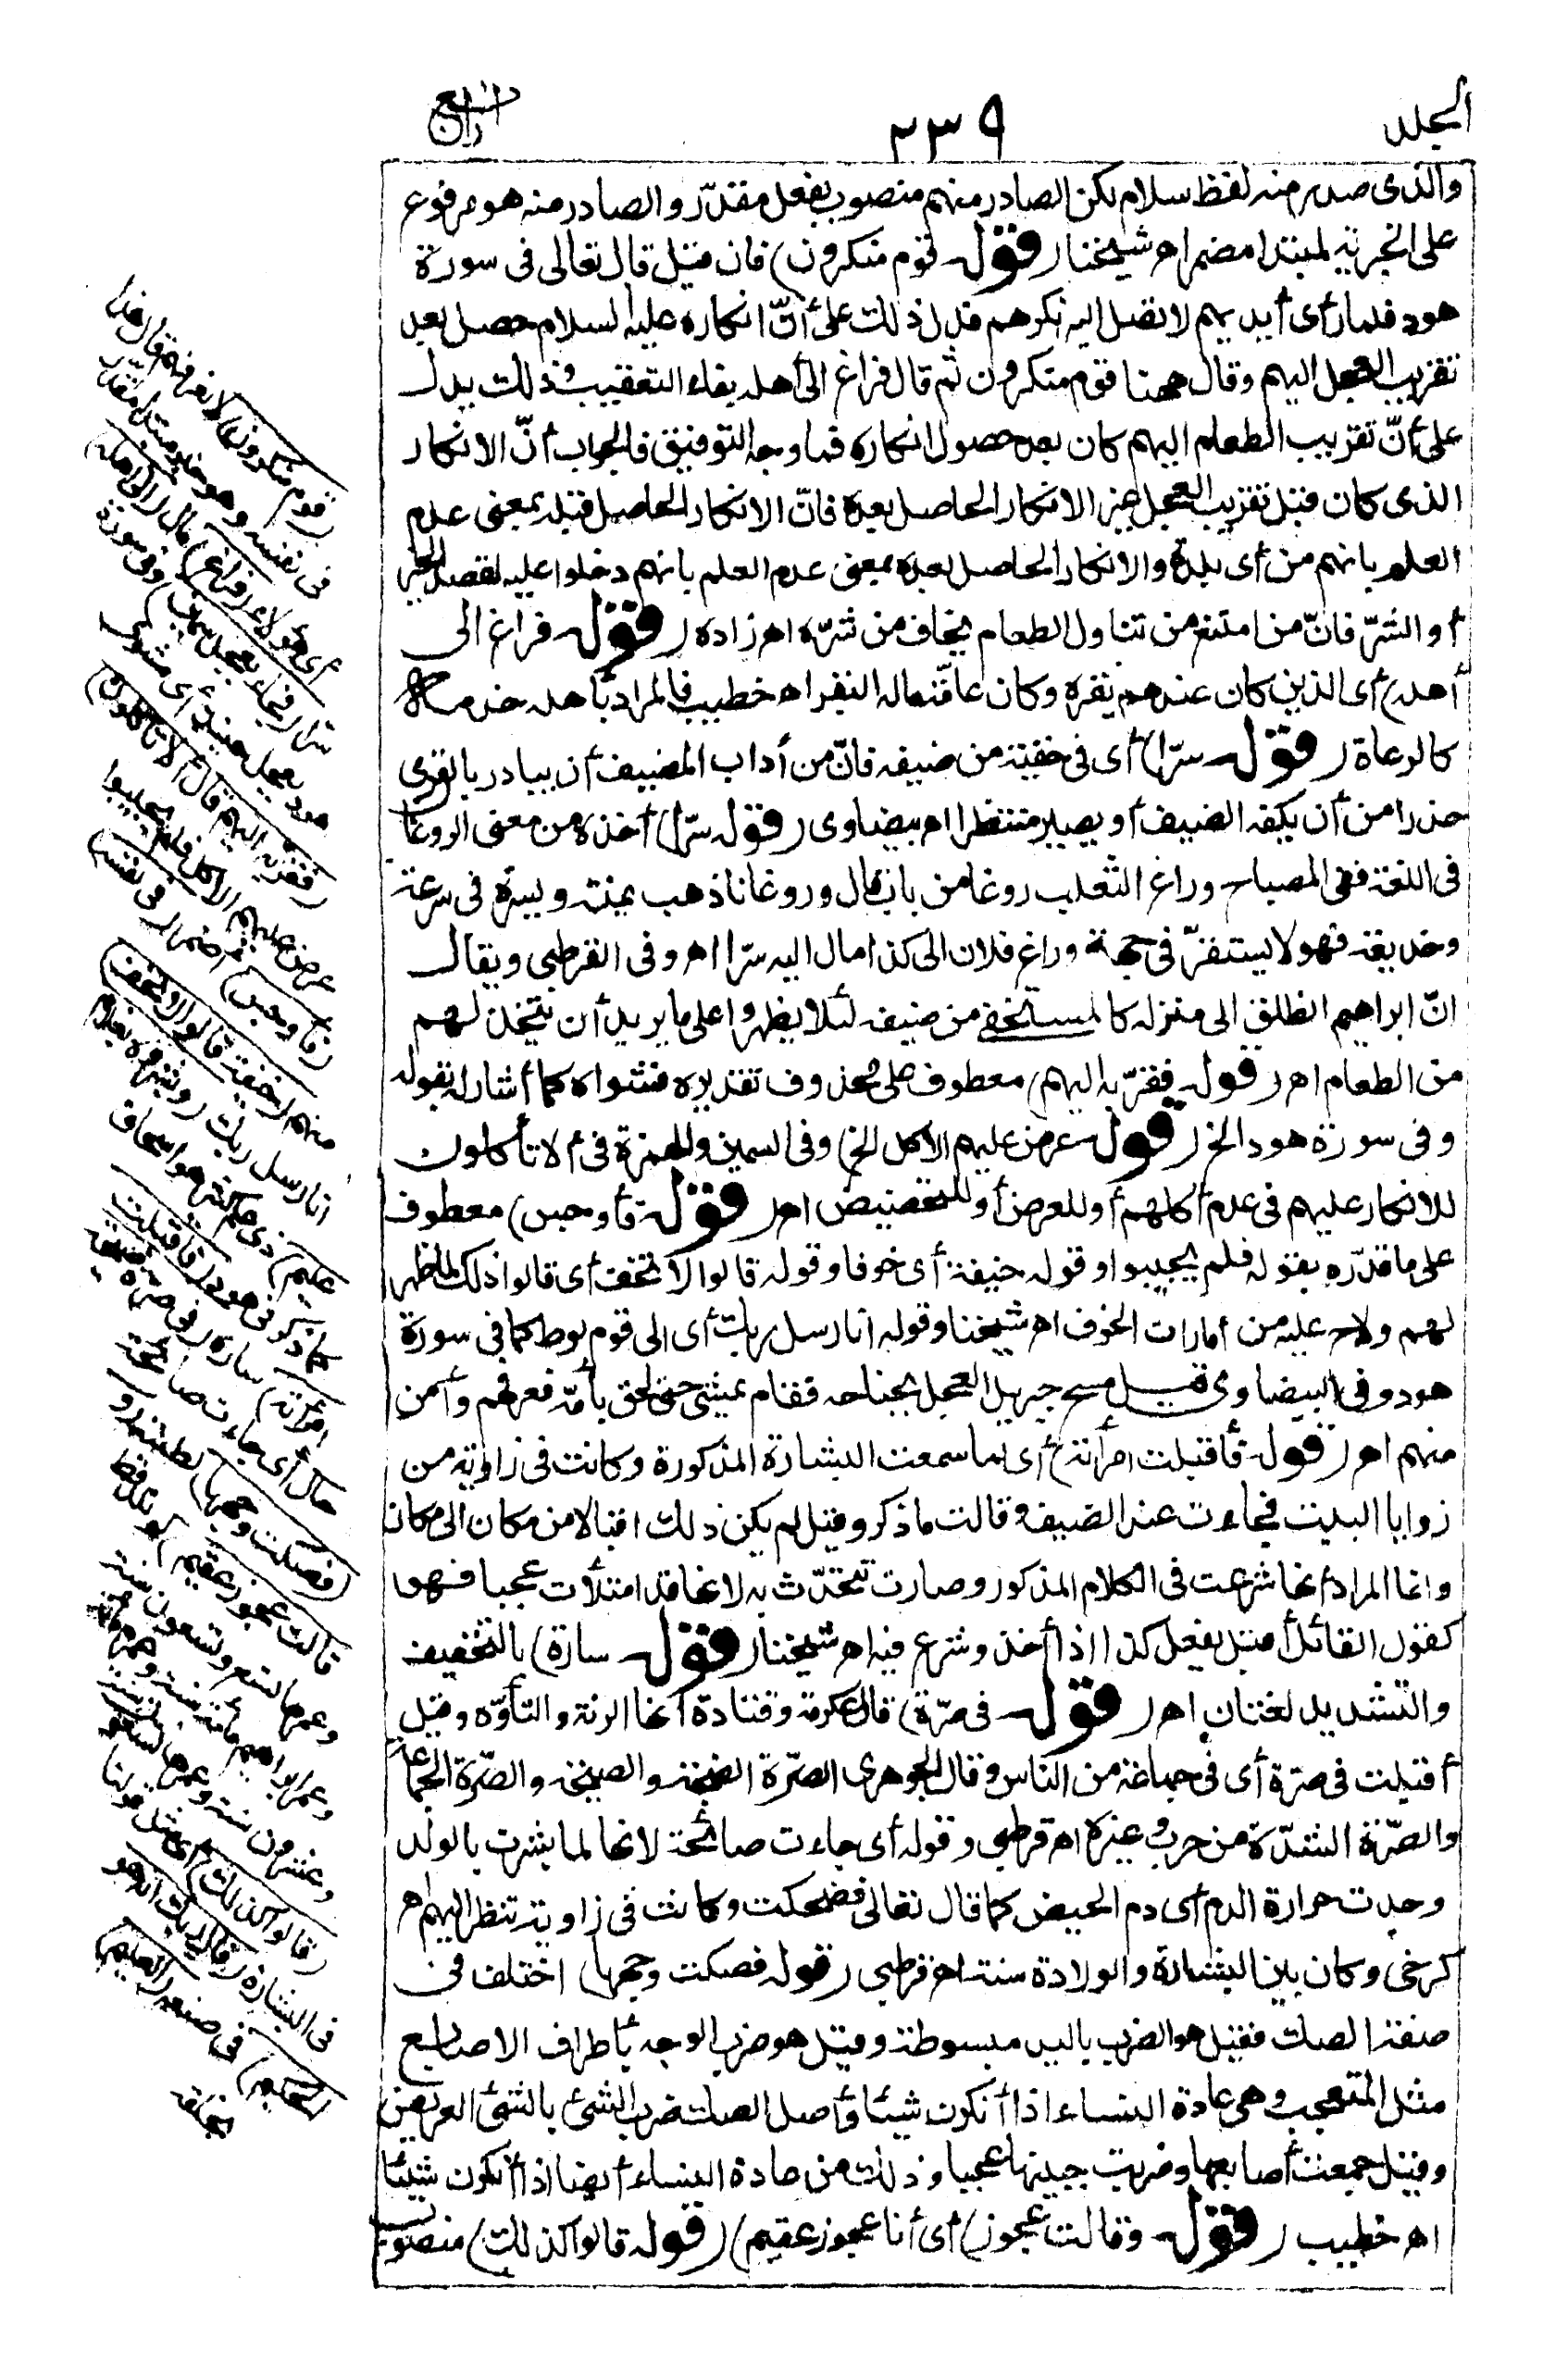 المجلد
٢٣٩
الرابع
والذى صدر منه لفظ سلام لكن الصادر منهم منصوب بفعل مقدّر والصادر منه هو مرفوع
على الخبرية لمبتدا مضمر اه شيخنا (قوله قوم منكرون) فان قيل قال تعالى فى سورة
هود فلما رأى أيديهم لا تصل اليه نكرهم فدل ذلك على أنّ انكاره عليه السلام حصل بعد
تقريب العجل اليهم وقال ههنا قوم منكرون ثم قال فراغ الى أهله بفاء التعقيب وذلك يدل
على أنّ تقريب الطعام اليهم كان بعد حصول انكاره فما وجه التوفيق فالجواب أنّ الانكار
الذى كان قبل تقريب العجل غير الانكار الحاصل بعده فانّ الانكار الحاصل قبله بمعنى عدم
العلم بانهم من أى بلدة والانكار الحاصل بعده بمعنى عدم العلم بانهم دخلوا عليه لقصد الخير
أو الشرّ فانّ من امتنع من تناول الطعام يخاف من شرّه اه زاده (قوله فراغ الى
أهله) أى الذين كان عندهم بقره وكان عامّة ماله البقر اه خطيب فالمراد بأهله خدمه
كالرعاة (قوله سرّا) أى فى خفية من ضيفه فانّ من أداب المضيف أن يبادر بالقرى
حذرا من أن يكفه الضيف أو يصير منتظرا اه بيضاوى (قوله سرّا) أخذه من معنى الروغا
فى اللغة ففى المصباح وراغ الثعلب روغا من باب قال وروغانا ذهب يمنة ويسرة فى سرعة
وخديعة فهو لا يستقرّ فى جهة وراغ فلان الى كذا مال اليه سرّا اه وفى القرطبى ويقال
انّ ابراهيم انطلق الى منزله كالمستخفى من ضيفه لئلا يظهروا على ما يريد أن يتخذ لهم
من الطعام اه (قوله فقرّبه اليهم) معطوف على محذوف تقديره فشواه كما أشار له بقوله
وفى سورة هود الخ (قوله عرض عليهم الاكل الخ) وفى السمين والهمزة فى ألا تأكلون
للانكار عليهم فى عدم أكلهم أو للعرض أو للتحضيض اه (قوله فأوجس) معطوف
على ما قدّره بقوله فلم يجيبوا وقوله خيفة أى خوفا وقوله قالوا لا تخف أى قالوا ذلك لما ظهر
لهم ولاح عليه من أمارات الخوف اه شيخنا وقوله انا رسل ربك أى الى قوم لوط كما فى سورة
هود وفى البيضاوى قيل مسح جبريل العجل بجناحه فقام يمشى حتى لحق بأمّه فعرفهم وأمن
منهم اه (قوله فأقبلت امرأته) أى لما سمعت البشارة المذكورة وكانت فى زاوية من
زوايا البيت فجاءت عند الضيف وقالت ما ذكر وقيل لم يكن ذلك اقبالا من مكان الى مكان
وانما المراد أنها شرعت فى الكلام المذكور وصارت تتحدّث به لانها قد امتلأت عجبا فهو
كقول القائل أقبل يفعل كذا اذا أخذ وشرع فيه اه شيخنا (قوله سارة) بالتخفيف
والتشديد لغتان اه (قوله فى صرّة) قال عكرمة وقتادة أنها الرنة والتأوّه وقيل
أقبلت فى صرة أى فى جماعة من الناس وقال الجوهرى الصرّة الضجة والصيحة والصرّة الجماعة
والصرّة الشدّة من حرب وغيره اه قرطبى وقوله أى جاءت صائحة لانها لما بشرت بالولد
وجدت حرارة الدم أى دم الحيض كما قال تعالى فضحكت وكانت فى زاوية تنظر اليهم اه
كرخى وكان بين البشارة والولادة سنة اه قرطبى (قوله فصكت وجهها) اختلف فى
صفة الصك فقيل هو الضرب باليد مبسوطة وقيل هو ضرب الوجه بأطراف الاصابع
مثل المتعجب وهى عادة النساء اذا أنكرن شيئا وأصل الصك ضرب الشئ بالشئ العريض
وقيل جمعت أصابعها وضربت جبينها عجبا وذلك من عادة النساء أيضا اذا أنكرن شيئا
اه خطيب (قوله وقالت عجوز) أى أنا عجوز عقيم (قوله قالوا كذلك) منصوب
(قوم منكرون) لا نعرفهم قال هذا
فى نفسه وهو خبر مبتدا مقدر
أى هؤلاء (فراغ) مال (الى أهله)
سرا (فجاء بعجل سمين) وفى سورة
هود بعجل حنيذ أى مشوى
(فقربه اليهم قال ألا تأكلون)
عرض عليهم الاكل فلم يجيبوا
(فأوجس) أضمر فى نفسه
منهم (خيفة قالوا لا تخف)
انا رسل ربك (وبشروه بغلام
عليم) ذى علم كثير هو اسحاق
كما ذكر فى هود (فأقبلت
امرأته) سارة (فى صرة) صيحة
حال أى جاءت صائحة
(فصكت وجهها) لطمته (و
قالت عجوز عقيم) لم تلد قط
وعمرها تسع وتسعون سنة
وعمر ابراهيم مائة سنة أو عمره مائة
وعشرون سنة وعمرها تسعون سنة
(قالوا كذلك) أى مثل قولنا
فى البشارة (قال ربك انه هو
الحكيم) فى صنعه (العليم)
بخلقه